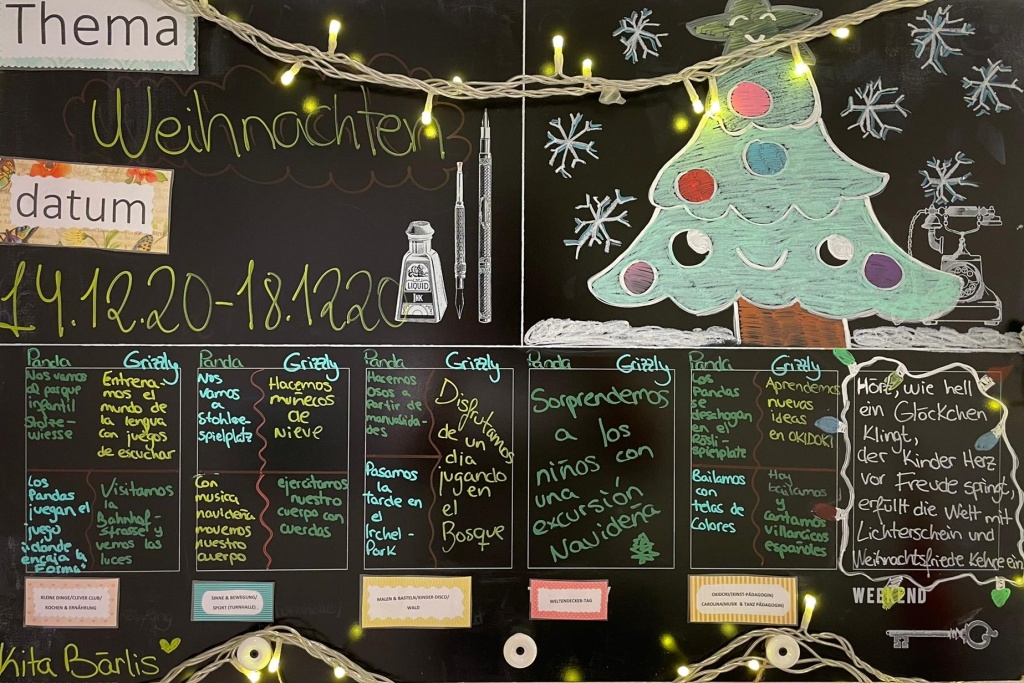 Thema
Weihnachten
datum
14.12.20-18.1220
LIQUID
INK
Panda
Grizzly
Nos vamos
al parque
infantil
Stolze-
wiesse
Entrena-
mos el
mundo de
la lengua
con juegos
de escuchar
Los
Pandas
juegan el
juego
encaja la
Forma"
Visitamos
la
Bahnhof-
strasse y
vemos las
luces
Panda
Grizzly
Nos
vamos
a
Stohlze-
spielplatz
Hacemos
muñecos
de
nieve
Con
musica
navideña
movemos
nuestro
cuerpo
ejercitamos
nuestro
cuerpo con
cuerdas
Panda
Grizzly
Hacemos
Osos a
Partir de
manualida-
des
Disfrutamos
de un
dia
jugando
en
el
Bosque
Pasamos
la
tarde en
el
Irchel-
Park
Panda
Grizzly
Sorprendemos
a los
niños con
una
excursión
Navideña
Panda
Grizzly
Los
Pandas
se
desahogan
en el
Rösli-
spielplatz
Aprendemos
nuevas
ideas
en OKIDOKI
Bailamos
con
telas de
Colores
Hoy
bailamos
y
cantamos
villancicos
españoles
Hört, wie hell
ein Glöckchen
Klingt,
der Kinder Herz
vor Freude springt,
erfüllt die Welt mit
Lichterschein und
Weihnachtsfriede Kehre ein
KLEINE DINGE/CLEVER CLUB/
KOCHEN & ERNÄHRUNG
SINNE & BEWEGUNG/
SPORT (TURNHALLE)
MALEN & BASTELN/KINDER-DISCO/
WALD
WELTENDECKER-TAG
OKIDOKI(KUNST-PÄDAGOGIN)
CAROLINA(MUSIK & TANZ PÄDAGOGIN)
WEEKEND
Kita Bärlis